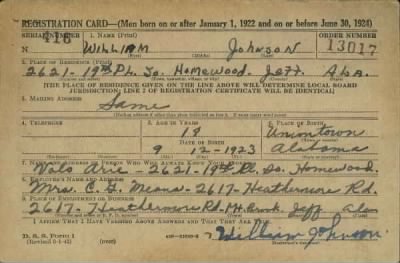 REGISTRATION CARD—(Men born on or after January 1, 1922 and on or before June 30, 1924)
SERIAL NUMBER 1. NAME (Print) ORDER NUMBER
416 WILLIAM JOHNSON 13017
2. PLACE OF RESIDENCE (Print)
2621-19th Pl. So. Homewood. Jeff. Ala.
[THE PLACE OF RESIDENCE GIVEN ON THE LINE ABOVE WILL DETERMINE LOCAL BOARD
JURISDICTION; LINE 2 OF REGISTRATION CERTIFICATE WILL BE IDENTICAL]
3. MAILING ADDRESS
Same
4. TELEPHONE 5. AGE IN YEARS 6. PLACE OF BIRTH
19 Uniontown
DATE OF BIRTH
9 12-1923 Alabama
7. NAME AND ADDRESS OF PERSON WHO WILL ALWAYS KNOW YOUR ADDRESS
2621-19th Pl. So. Homewood.
8. EMPLOYER'S NAME AND ADDRESS
Mrs. C. G. Means-2617-Heathermore Rd.
9. PLACE OF EMPLOYMENT OR BUSINESS
2617-Heathermore Rd. Mt. Brook. Jeff Ala
I AFFIRM THAT I HAVE VERIFIED ABOVE ANSWERS AND THAT THEY ARE TRUE.
D. S. S. FORM 1
(Revised 6-1-42)
William Johnson.